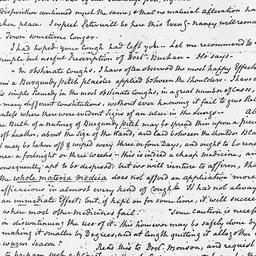 disposition continued much the same, & that no material alteration ha
taken place. I expect Peter will be here this Even'g - nancy will remain
in Town sometime longer.
I had hoped your Cough had left you - Let me recommend to
simple but useful Prescription of Doct'r Buchan - He says -
"In obstinate Coughs, I have often observed the most happy Effects
from a Burgundy-pitch plaister applied between the Shoulders. I have
this simple Remedy in the most obstinate Coughs, in a great number of Cases,
many different Constitutions, without ever knowing it fail to give Rel
unless where there were evident Signs of an ulcer in the Lungs -
the Bulk of a nutmeg of Burgundy pitch may be spread thin upon a piece
of soft leather, about the Size of the Hand, and laid between the Shoulder Blades
it may be taken off & wiped every three or four Days, and ought to be renew
once a fortnight or three weeks - This is indeed a cheap medicine, and
consequently, apt to be despised; but we will venture to affirm, that
the whole materia medica does not afford an application more
efficacious in almost every kind of Cough. It has not always
an immediate Effect; but, if kept on for some time, it will succeed
where most other medicines fail."
"Some Caution is necessary
in discontinuing the use of it - this however may be safely done by
making it smaller by Degrees, and at length quitting it altogether in
warm Season."
Read this to Doct. Monson, and request
to prepare such a